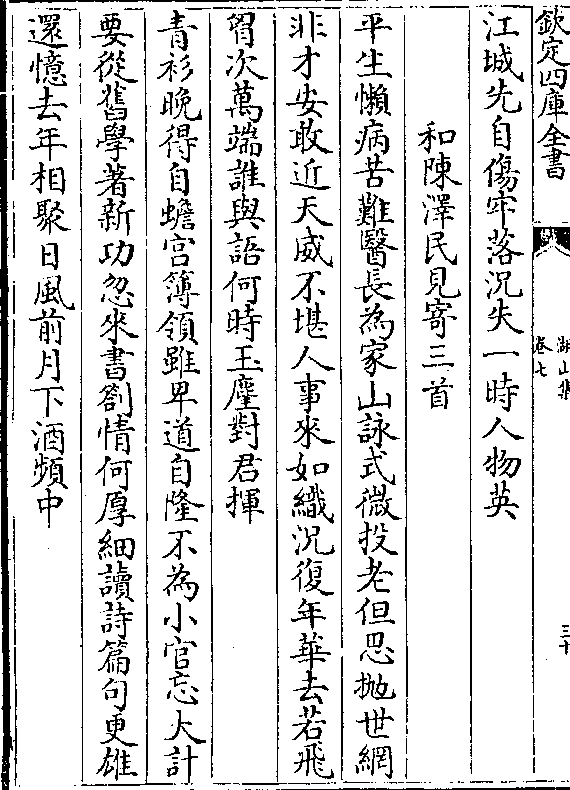 欽定四庫全書
湖山集
卷七
三十
江城先自傷牢落況失一時人物英
和陳澤民見寄三首
平生懶病苦難醫長為家山詠式微投老但思抛世網
非才安敢近天威不堪人事來如織況復年華去若飛
胷次萬端誰與語何時玉麈對君揮
青衫晚得自蟾宫簿領雖卑道自隆不為小官忘大計
要從舊學著新功忽來書劄情何厚細讀詩篇句更雄
還憶去年相聚日風前月下酒頻中